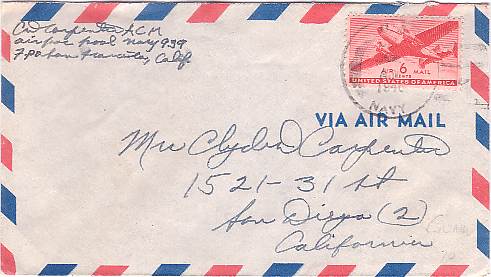 CW Carpenter ACM
airpac pool Navy 939
F.P.O. San Francisco, Calif.
AIR 6 MAIL
CENTS
UNITED STATES OF AMERICA
NAVY
VIA AIR MAIL
Mrs Clyde W Carpenter
1521-31 St
San Diego (2)
California
Guam